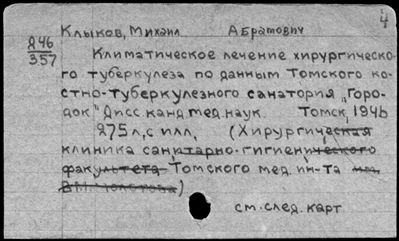 4
Клыков, Михаил Абрамович
246
357
Климатическое лечение хирургическо-
го туберкулеза по данным Томского ко-
стно-туберкулезного санатория „Горо-
док" Дисс канд мед. наук. Томск, 1946
275 л, с илл, (Хирургическая
клиника санитарно-гигиенического
факультета Томского мед. ин-та им.
В М Молотова)
см. след. карт